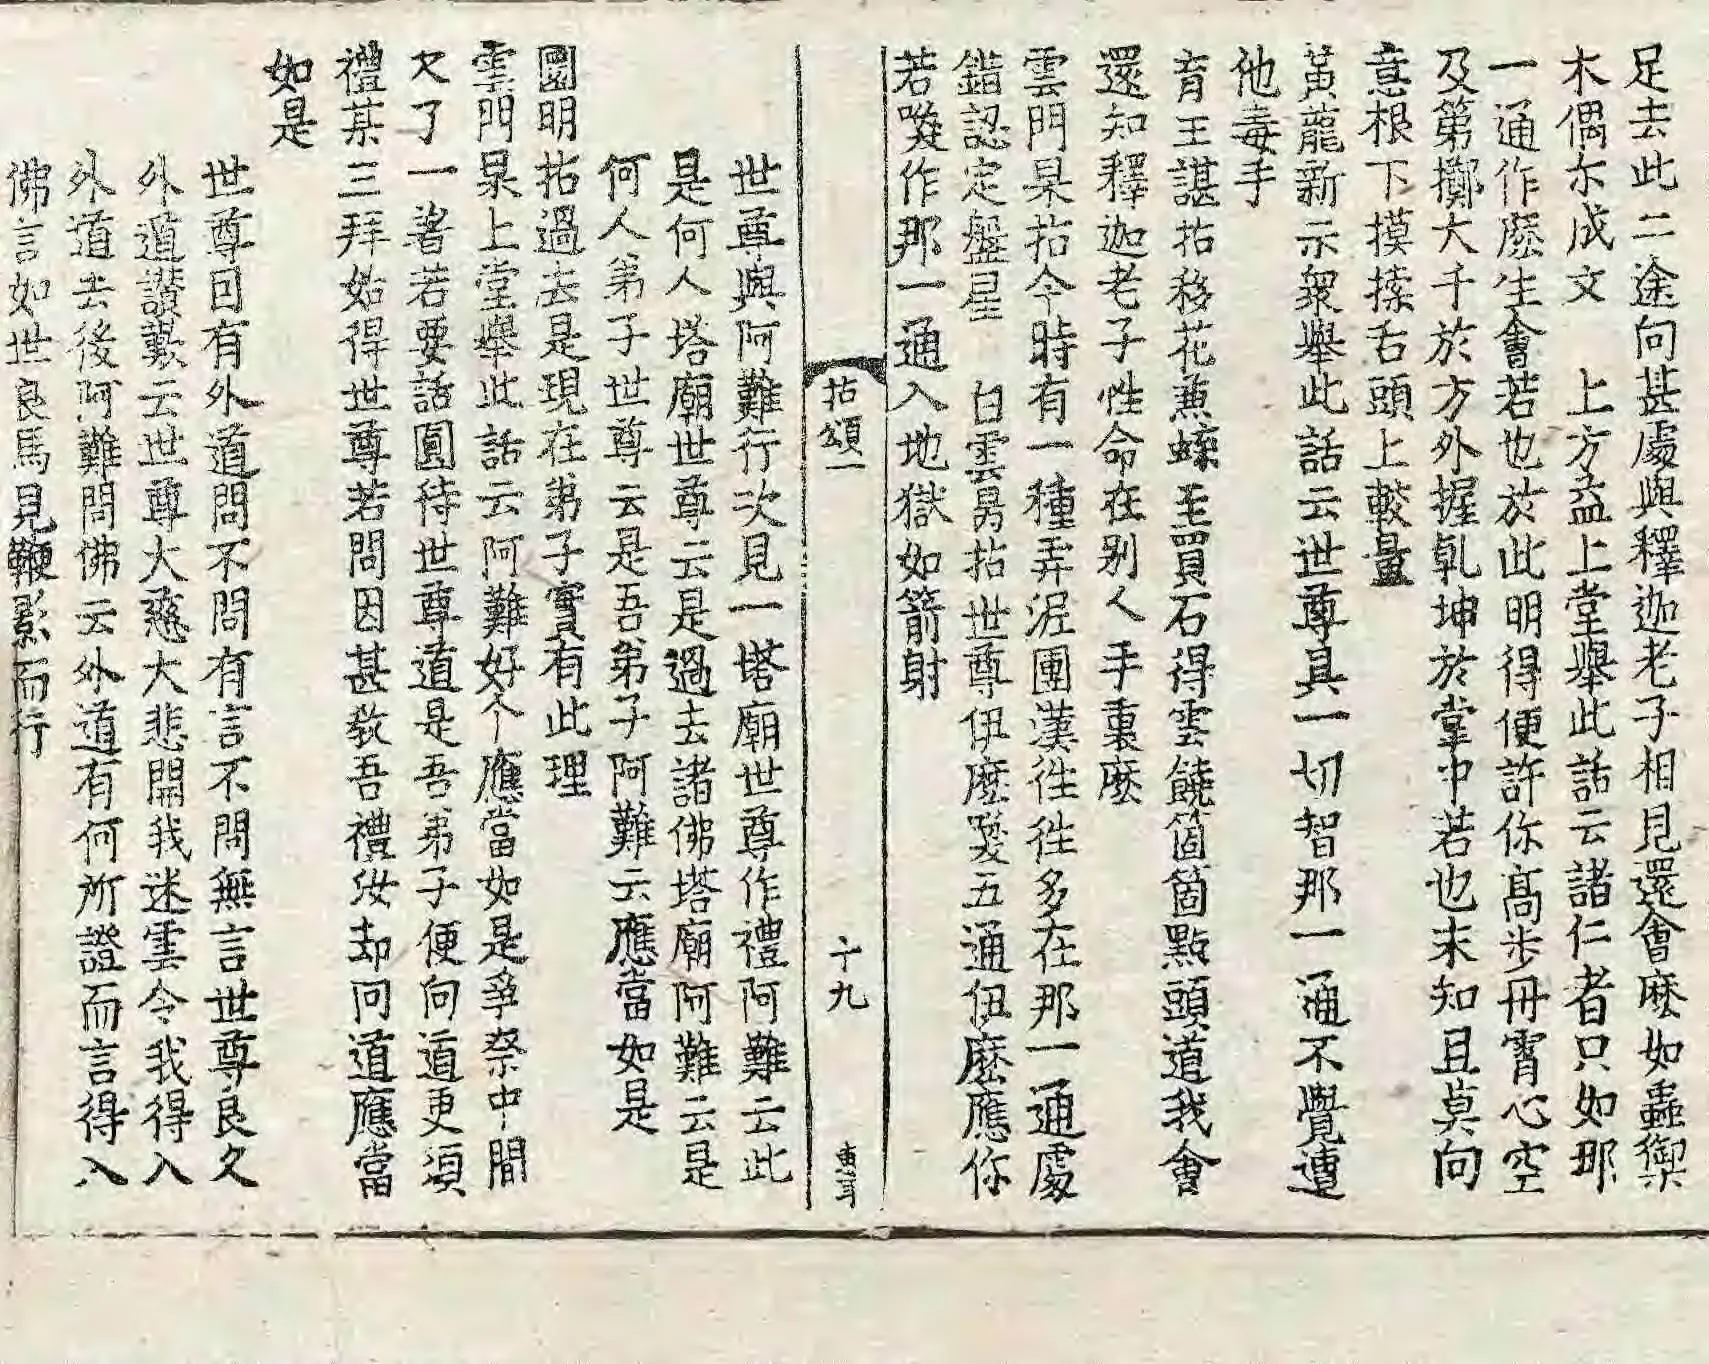 足去此二途向甚處與釋迦老子相見還會麽如蟲禦
木偶尒成文　上方益上堂舉此話云諸仁者只如那
一通作麽生會若也於此明得便許你髙步丹霄心空
及第擲大千於方外握乹坤於掌中若也未知且莫向
意根下摸𢱢舌頭上較量
黃龍新示衆舉此話云世尊具一切智那一通不覺遭
他毒手
育王諶拈移花兼蝶至買石得雲饒箇箇點頭道我會
還知釋迦老子性命在别人手裏麽
雲門杲拈今時有一種弄泥團漢徃徃多在那一通處
錯認定盤星　白雲昺拈世尊伊麽喚五通伊麽應你
若喚作那一通入地獄如箭射
拈頌一
十九
世尊與阿難行次見一塔廟世尊作禮阿難云此
是何人塔廟世尊云是過去諸佛塔廟阿難云是
何人弟子世尊云是吾弟子阿難云應當如是
圜明拈過去是現在弟子實有此理
雲門杲上堂舉此話云阿難好个應當如是爭柰中間
欠了一著若要話圓待世尊道是吾弟子便向道更須
禮某三拜始得世尊若問因甚敎吾禮汝却向道應當
如是
世尊因有外道問不問有言不問無言世尊良久
外道讃歎云世尊大慈大悲開我迷雲令我得入
外道去後阿難問佛云外道有何所證而言得入
佛言如世良馬見鞭影而行